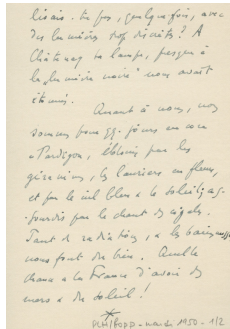 lisais-tu pas, quelquefois, avec
des lumières trop discrètes ? A
Châtenay ta lampe, presque à
la lumière noire nous avait
étonnés.
Quant à nous, nous
sommes pour qq. jours en
Pardigon, éblouis par les
géraniums, les lauriers en fleurs,
et par le ciel bleu & le soleil, as-
sourdis par le chant des cigales.
Tant de radiations, & les bains
nous font du bien. Quelle
chance a la France d'avoir des
mers & du soleil !
1950 - 1/2